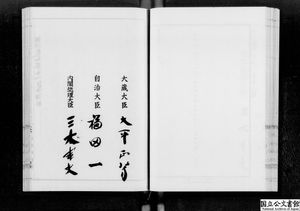 大蔵大臣 大平正芳
自治大臣 福田一
内閣総理大臣 三木武夫
国立公文書館
National Archives of Japan